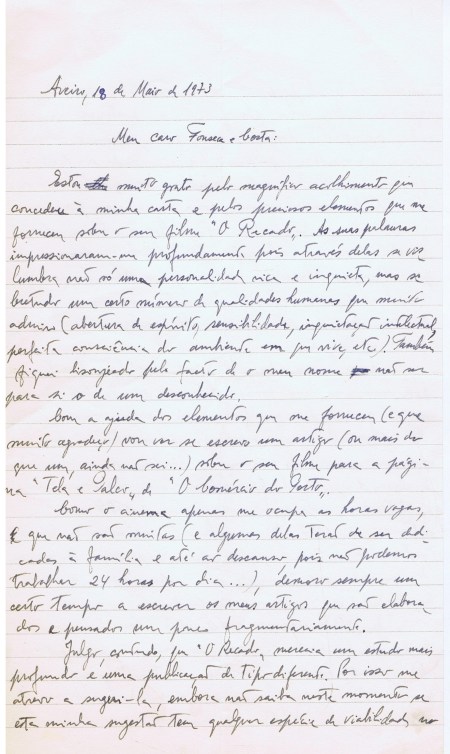 Aveiro, 18 de Maio de 1973
Meu caro Fonseca e Costa:
Estou muito grato pelo magnífico acolhimento que
concedeu à minha carta e pelos preciosos elementos que me
forneceu sobre o seu filme "O Recado". As suas palavras
impressionaram-me profundamente pois através delas se vis-
lumbra não só uma personalidade rica e inquieta, mas so-
bretudo um certo número de qualidades humanas que muito
admiro (abertura de espírito, sensibilidade, inquietação intelectual,
perfeita consciência do ambiente em que vive, etc.). Também
fiquei lisonjeado pelo facto de o meu nome não ser
para si o de um desconhecido.
Com a ajuda dos elementos que me forneceu (e que
muito agradeço) vou ver se escrevo um artigo (ou mais do
que um, ainda não sei...) sobre o seu filme para a pági-
na "Tela e Palco" de "O Comércio do Porto".
Como o cinema apenas me ocupa as horas vagas,
que não são muitas (e algumas delas terão de ser dedi-
cadas à família e até ao descanso, pois não podemos
trabalhar 24 horas por dia...), demoro sempre um
certo tempo a escrever os meus artigos que são elabora-
dos e pensados um pouco fragmentariamente.
Julgo, contudo, que "O Recado" merecia um estudo mais
profundo e uma publicação de tipo diferente. Por isso me
atrevo a sugeri-la, embora não saiba neste momento se
esta minha sugestão tem qualquer espécie de viabilidade no